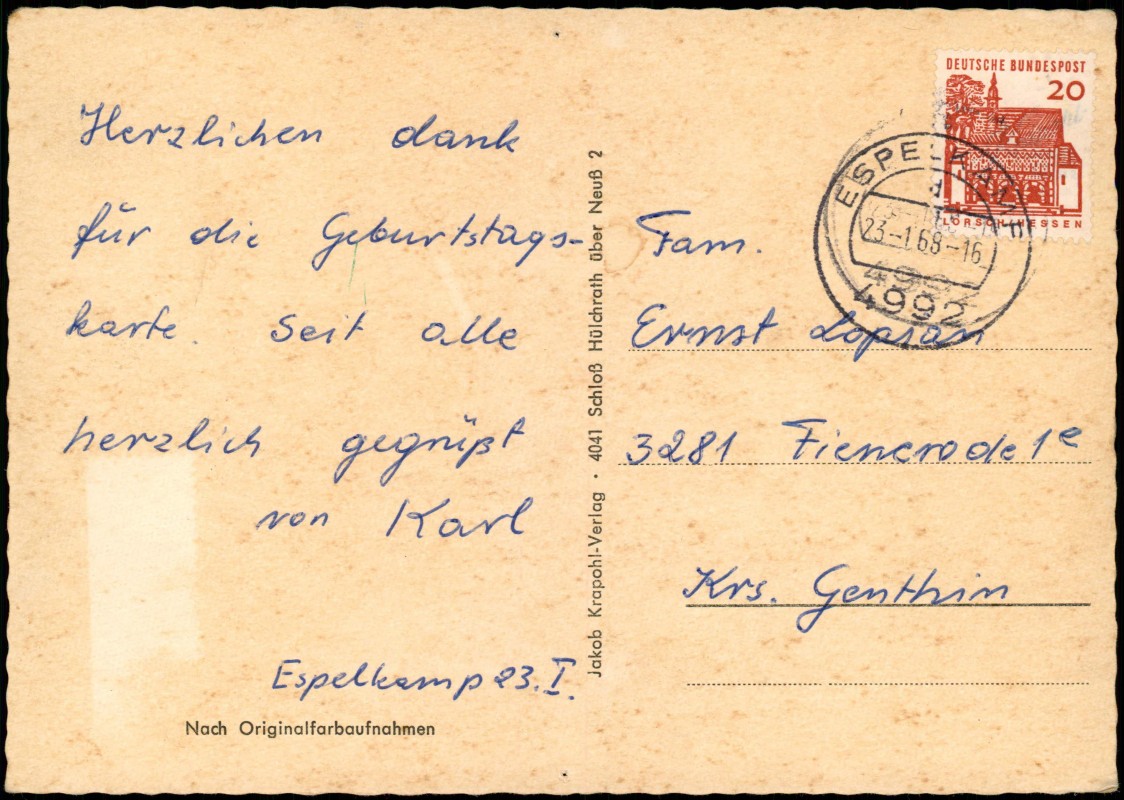 Herzlichen dank
für die Geburtstags-
karte. Seit alle
herzlich gegrüßt
von Karl
Espelkamp 23.I.
Nach Originalfarbaufnahmen
Jakob Krapohl-Verlag · 4041 Schloß Hülchrath über Neuß 2
DEUTSCHE BUNDESPOST
20
LORSCH/HESSEN
ESPELKAMP
d
23-1.68-16
4992
Fam.
Ernst Lopsan
3281 Fienerode 1e
Krs. Genthin